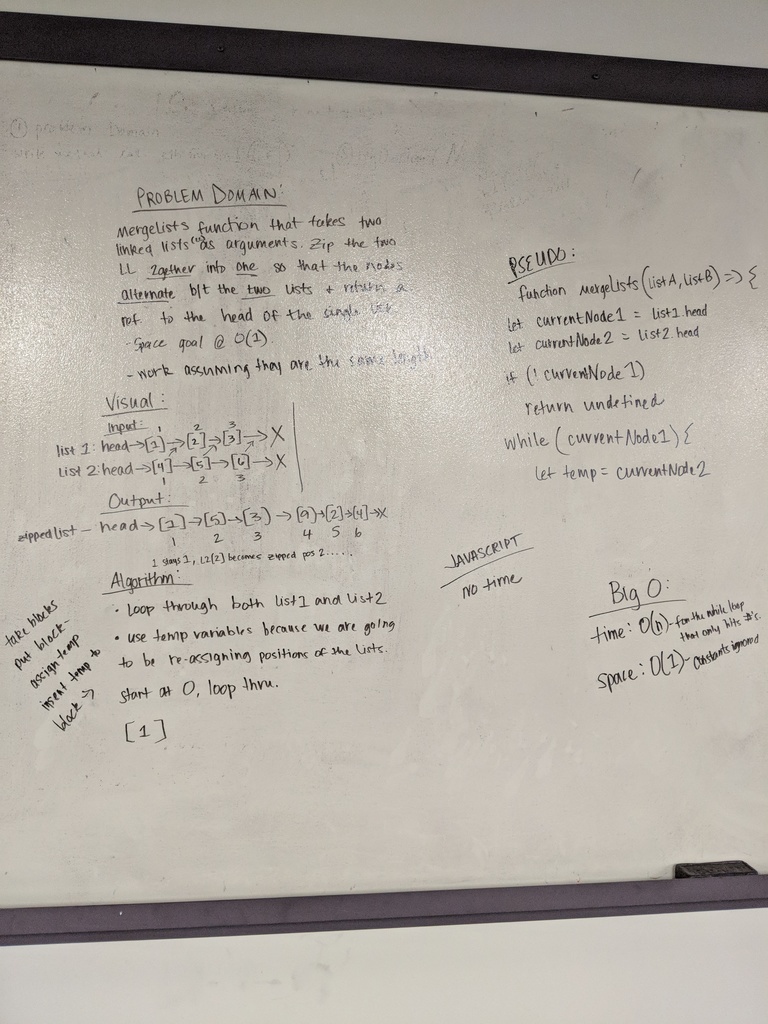 ① problem Domain
PROBLEM DOMAIN:
mergeLists function that takes two
linked lists as arguments. Zip the two
LL 2gether into one so that the nodes
alternate b/t the two lists + return a
ref. to the head of the single list
- Space goal @ O(1).
- work assuming they are the same length
Visual:
Input:
1 2 3
list 1: head→[1]→[2]→[3]→X
List 2: head→[4]→[5]→[6]→X
1 2 3
Output:
zippedList - head→[1]→[5]→[3]→[9]→[2]→[4]→X
1 2 3 4 5 6
1 stays 1, L2[2] becomes zipped pos 2......
Algorithm:
• Loop through both list1 and list2
• use temp variables because we are going
to be re-assigning positions of the lists.
start at 0, loop thru.
[1]
take blocks
put block-
assign temp
insert temp to
block
PSEUDO:
function mergeLists(listA, listB) => {
let currentNode1 = list1.head
let currentNode2 = List2.head
if (!currentNode1)
return undefined
while (currentNode1) {
let temp = currentNode2
JAVASCRIPT
No time
Big O:
time: O(n)-for the while loop
that only hits #'s.
space: O(1)- constants ignored